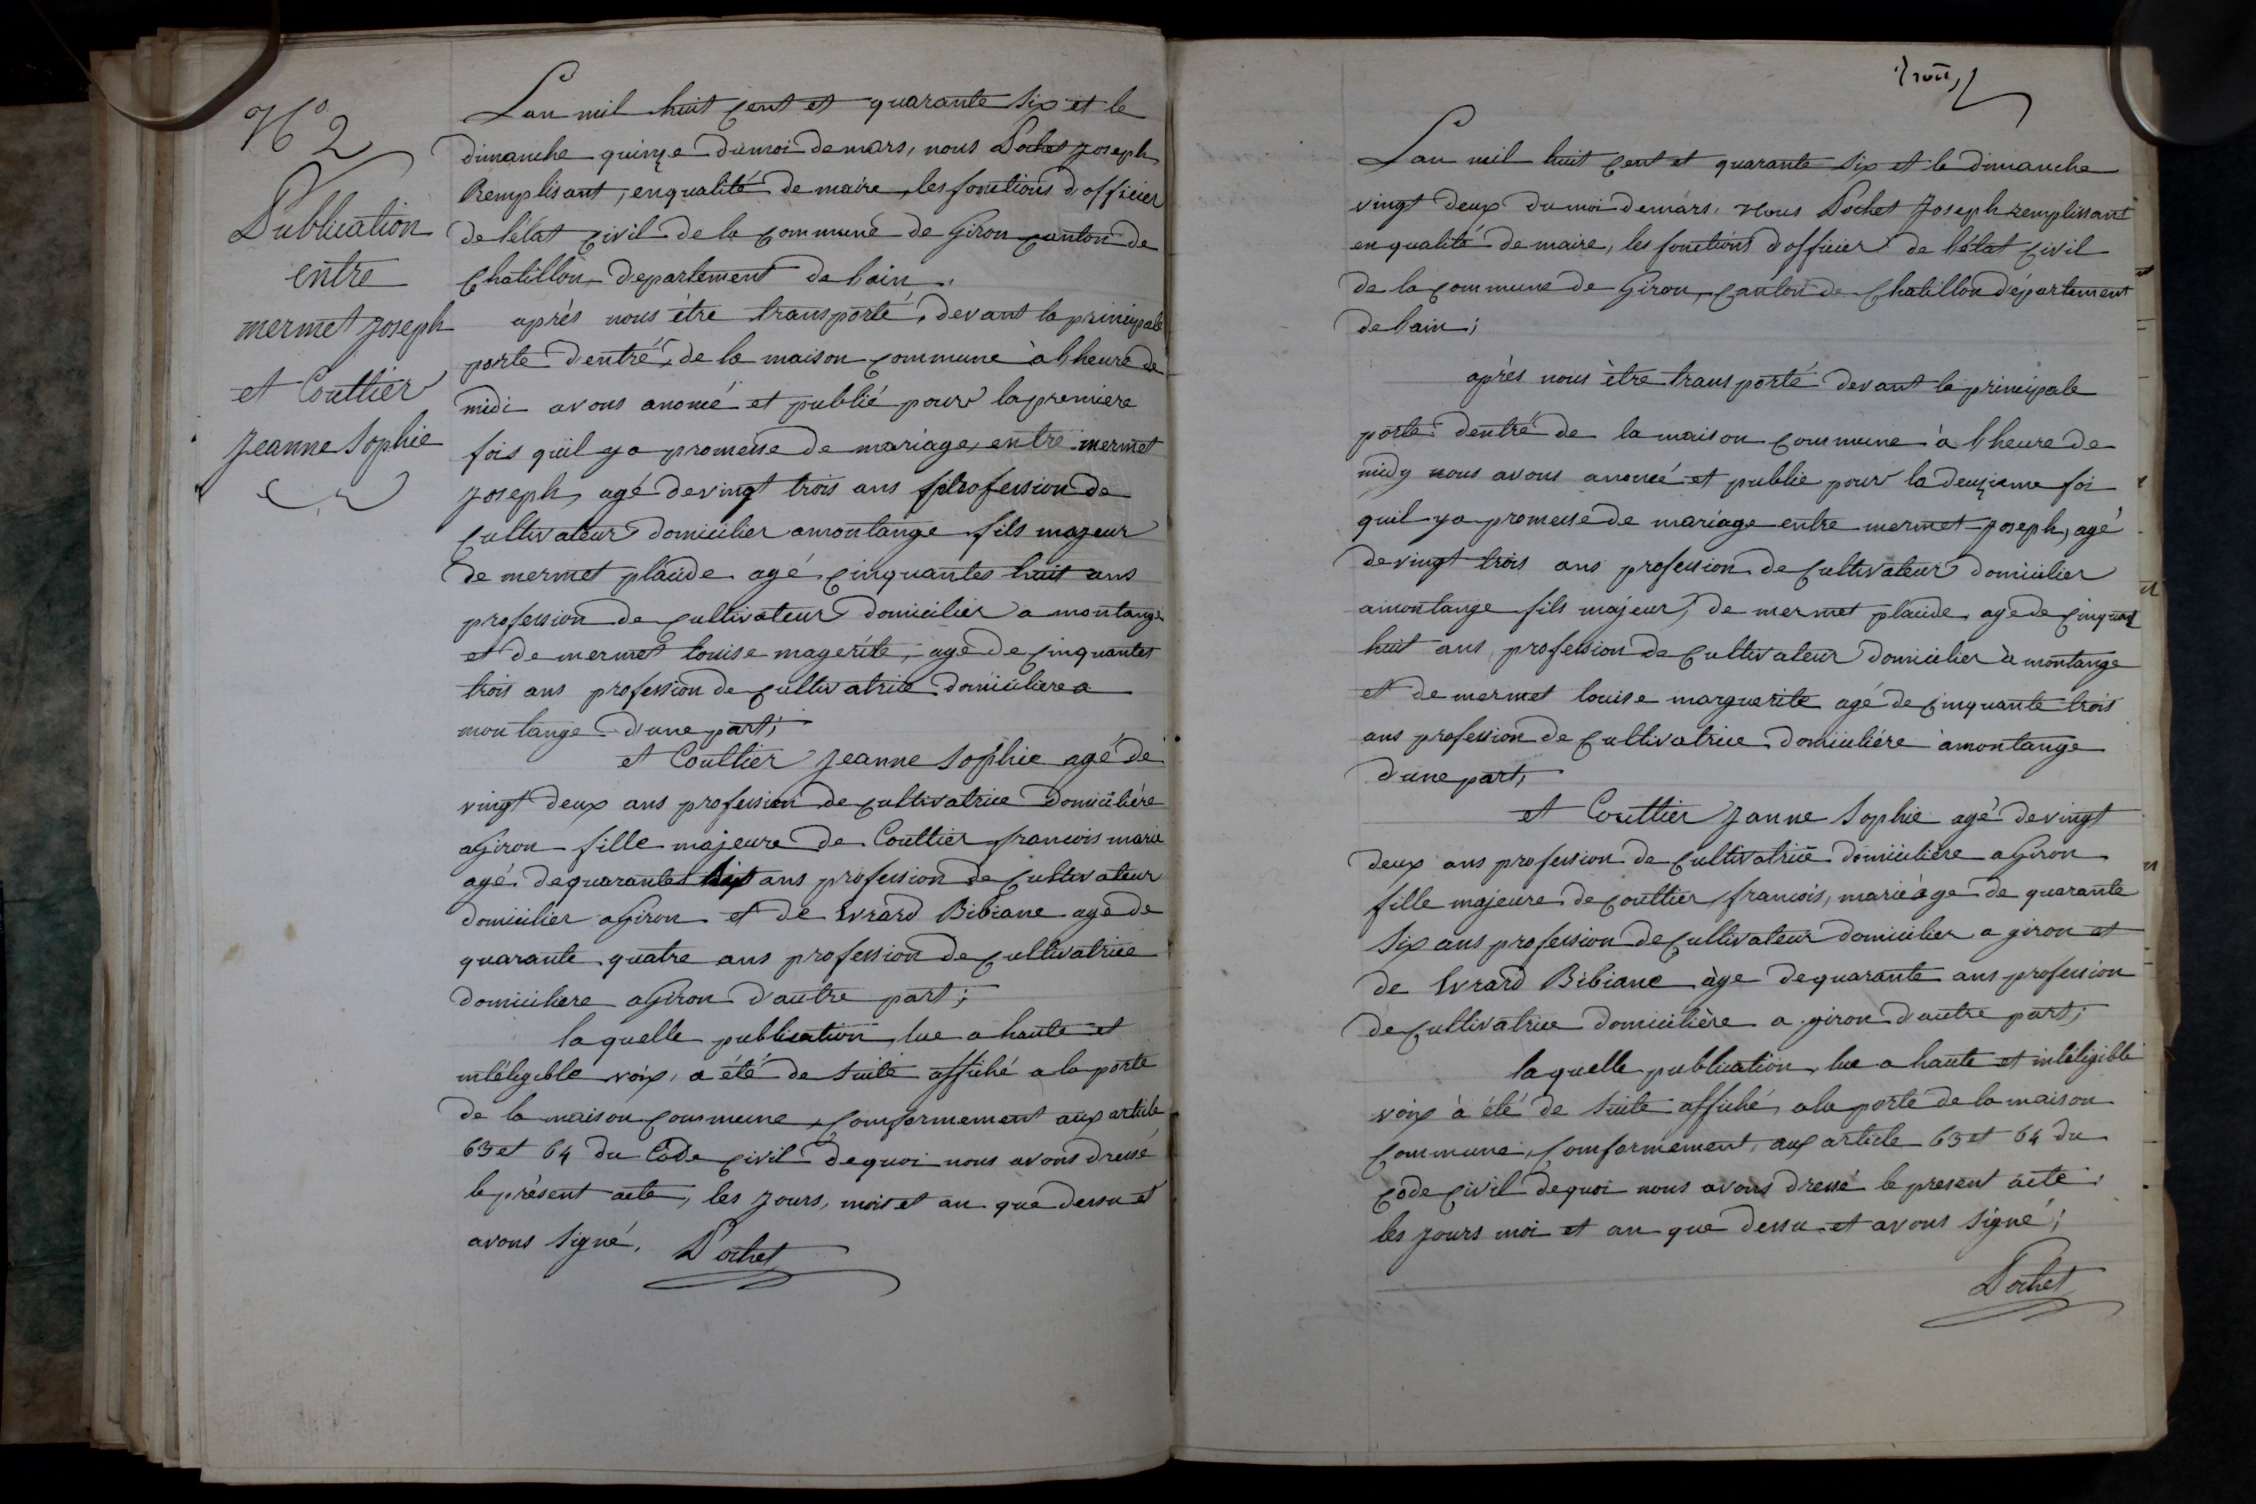 N° 2
Publication
entre
mermet Joseph
et Couttier
Jeanne Sophie
L'an mil huit cent et quarante six et le
dimanche quinze du moi de mars, nous Pochet Joseph
Remplisant, en qualité de maire, les fonctions d'officier
de l'état civil de la commune de Giron canton de
Chatillon departement de l'ain.
après nous être transporté, devant la principale
porte d'entré, de la maison commune à l'heure de
midi avons anoncé et publié pour la premiere
fois qu'il y a promesse de mariage, entre mermet
Joseph, agé de vingt trois ans profession de
cultivateur domicilier a montange fils majeur
de mermet placide agé cinquantes huit ans
profession de cultivateur domicilier a montange
et de mermet louise magerite, agé de cinquantes
trois ans profession de cultivatrice domiciliere a
montange d'une part;
et Couttier Jeanne Sophie agé de
vingt deux ans profession de cultivatrice domicilière
a Giron fille majeure de Couttier francois marie
agé de quarantes six ans profession de cultivateur
domicilier a Giron et de Evrard Bibiane agé de
quarante quatre ans profession de cultivatrice
domiciliere a Giron d'autre part;
laquelle publication, lue a haute et
inteligible voix, a été de suite affiché a la porte
de la maison commune, comformement aux article
63 et 64 du Code civil de quoi nous avons dressé
le présent acte, les jours, mois et an que dessu et
avons signé. Pochet
trois
L'an mil huit cent et quarante six et le dimanche
vingt deux du moi de mars, Nous Pochet Joseph remplissant
en qualité de maire, les fonctions d'officier de l'état civil
de la commune de Giron, canton de Chatillon département
de l'ain;
après nous être transporté devant la principale
porte d'entré de la maison commune à l'heure de
midy nous avons anoncé et publie pour la deuzieme foi
quil y a promesse de mariage entre mermet Joseph, agé
de vingt trois ans profession de cultivateur domicilier
a montange fils majeur, de mermet placide agé de cinquante
huit ans, profession de cultivateur domicilier à montange
et de mermet louise marguerite agé de cinquante trois
ans profession de cultivatrice domicilière à montange
d'une part,
et Couttier Janne Sophie agé de vingt
deux ans profession de cultivatrice domiciliere a Giron
fille majeure de couttier francois, marie agé de quarante
six ans profession de cultivateur domicilier a giron et
de Evrard Bibiane âge de quarante ans profession
de cultivatrice domicilière a giron d'autre part;
laquelle publication, lue a haute et inteligible
voix à été de suite affiché, a la porte de la maison
commune, comformement, aux article 63 et 64 du
code civil de quoi nous avons dressé le present acte.
les jours moi et an que dessu et avons signé;
Pochet